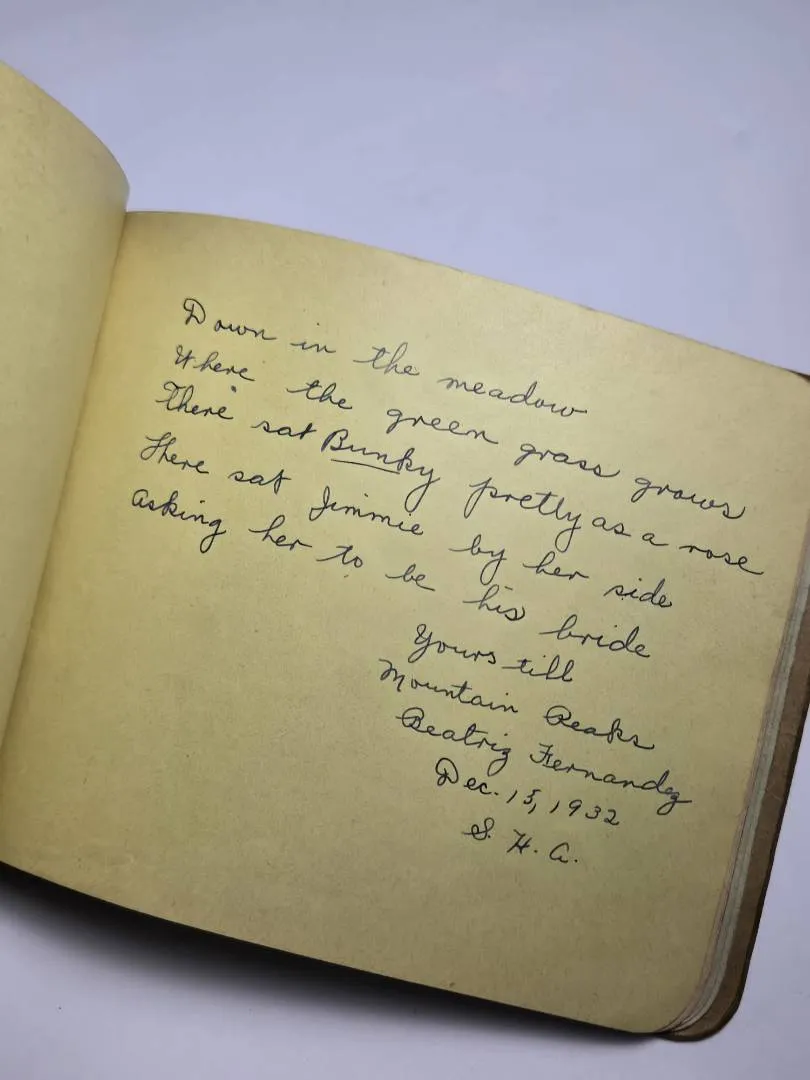 Down in the meadow
Where the green grass grows
There sat Bunky pretty as a rose
There sat Jimmie by her side
Asking her to be his bride
Yours till
Mountain Peaks
Beatriz Fernandez
Dec. 15, 1932
S. H. A.